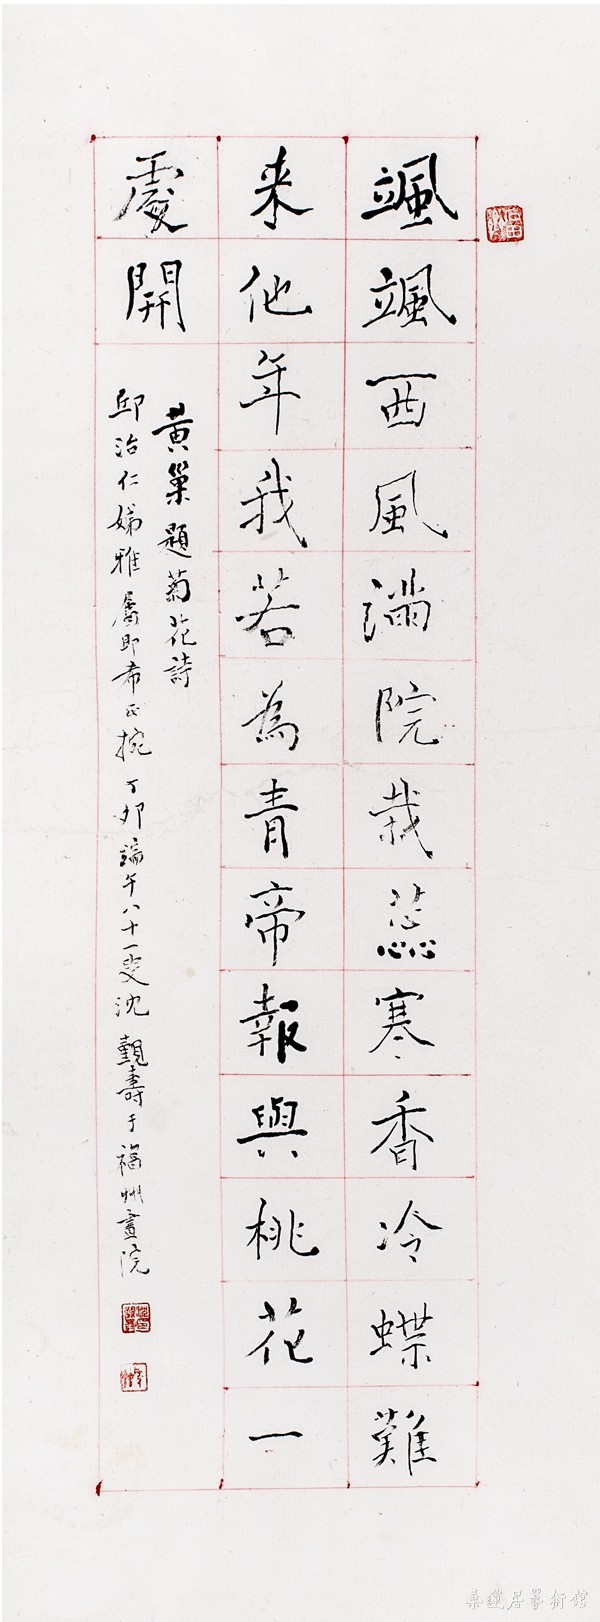 颯颯西風滿院栽蕊寒香冷蝶難
来他年我若為青帝報與桃花一
處開
黄巢題菊花詩
邱治仁娣雅屬即希正捥丁卯端午八十一叟沈覲壽于福州畫院